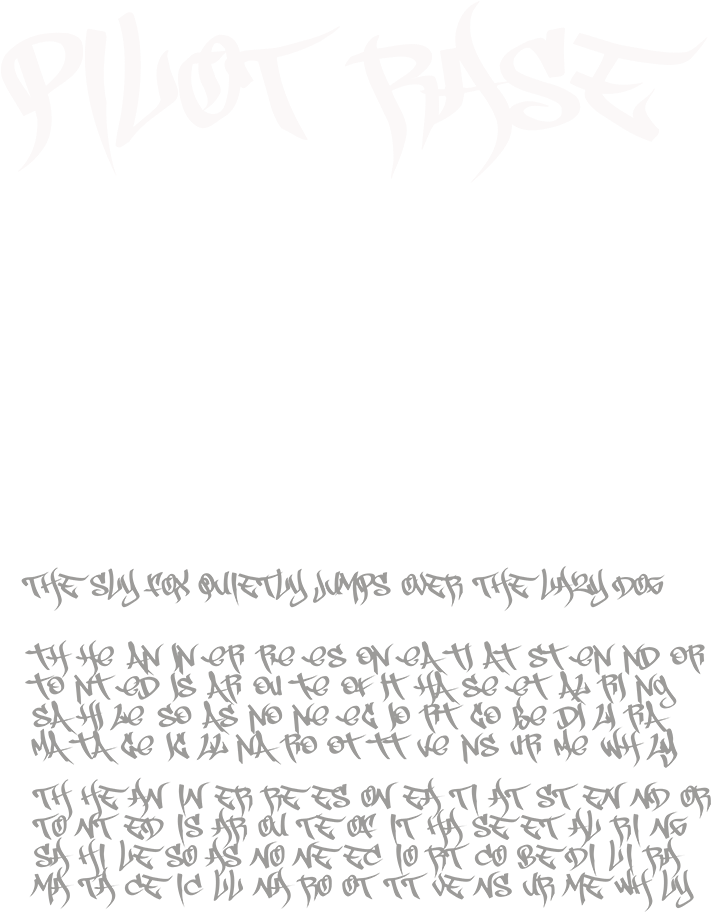 PILOT RASE
THE SLY FOX QUIETLY JUMPS OVER THE LAZY DOG
TH HE AN IN ER RE ES ON EA TI AT ST EN ND OR
TO NT ED IS AR OU TE OF IT HA SE ET AL RI NG
SA HI LE SO AS NO NE EC IO RT CO BE DI LI RA
MA TA CE IC LL NA RO OT TT VE NS UR ME WH LY
TH HE AN IN ER RE ES ON EA TI AT ST EN ND OR
TO NT ED IS AR OU TE OF IT HA SE ET AL RI NG
SA HI LE SO AS NO NE EC IO RT CO BE DI LI RA
MA TA CE IC LL NA RO OT TT VE NS UR ME WH LY